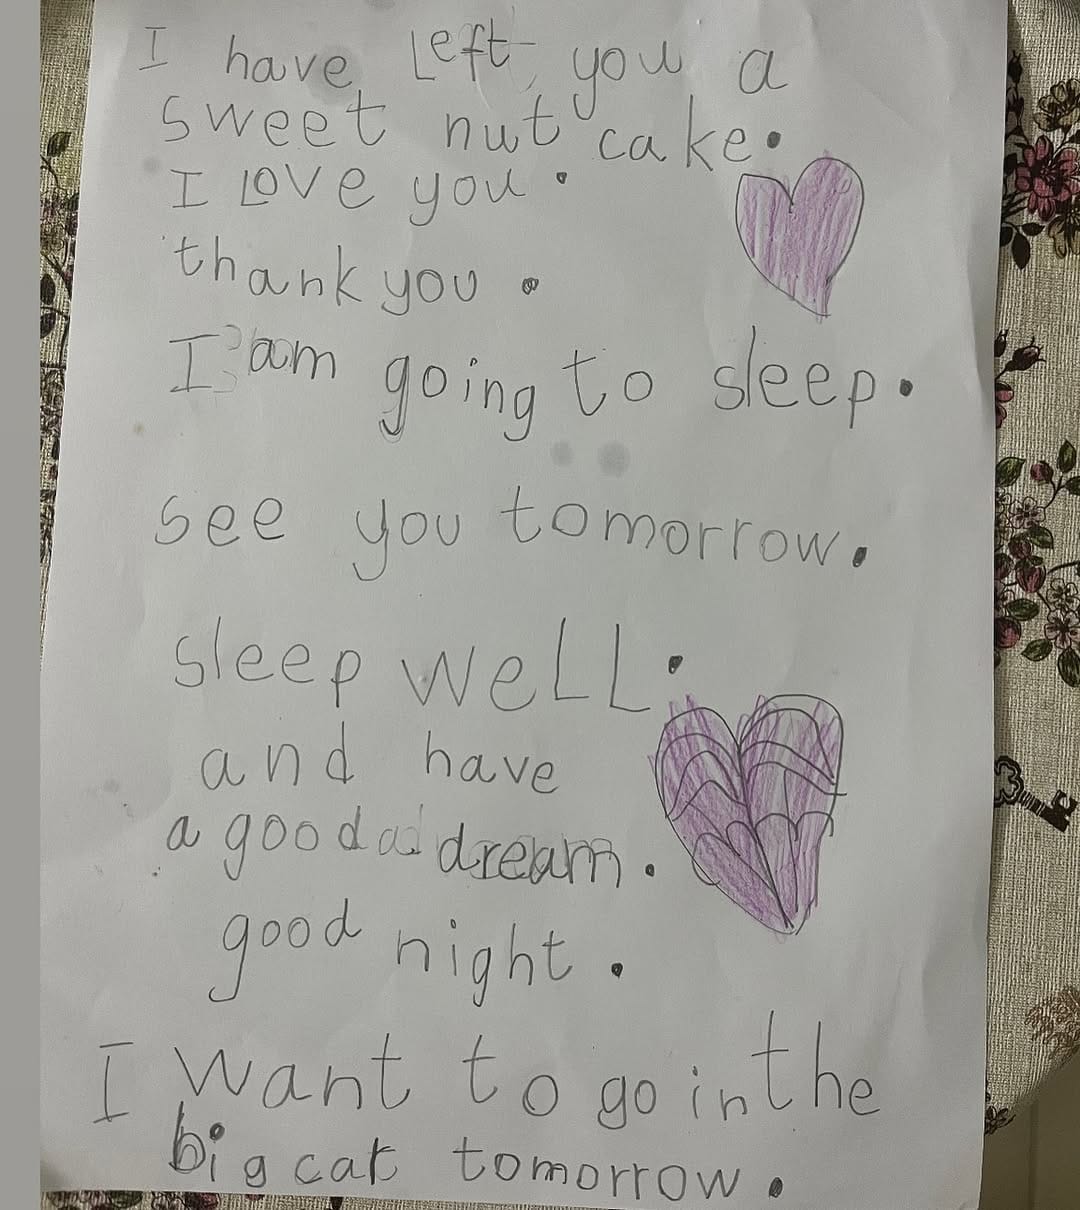 I have Left you a
sweet nut cake.
I Love you.
thank you.
I am going to sleep.
see you tomorrow.
sleep weLL.
and have
a good ad dream.
good night.
I want to go in the
big car tomorrow.